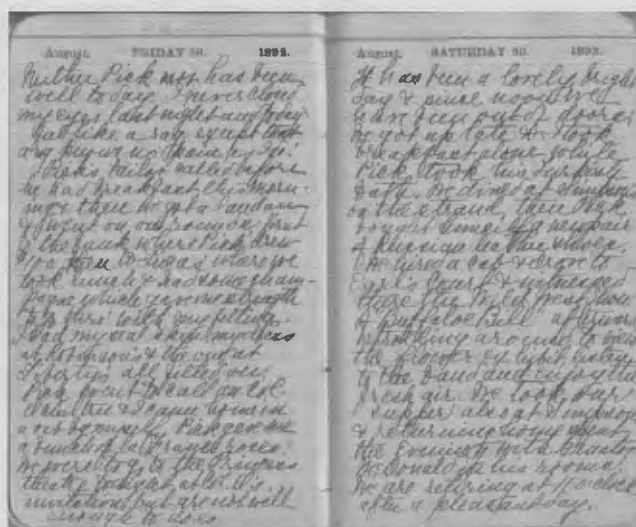 August. FRIDAY 1892.
Neither Pick nor has been
well to day. I never closed
my eyes last night and today
feel like a rag except that
a rag no pain
Pick's tailor called before
he had breakfast this morn-
ing then we got a
& went on our rounds, first
to the bank where Pick drew
where we
took lunch & had some cham-
pagne which gave me strength
with my fitting.
I had my
at Robinson's & the one at
Liberty's all fitted on.
Pick went to call on Col.
& I came home in
a cab by myself. Pick gave me
a bunch of La France roses.
We were to go to the Princess
theatre tonight at Col.
invitation, but are not well
enough to do so
August. SATURDAY 1892.
It has been a lovely bright
day & since noon we
have been out of doors.
We got up late & I took
breakfast alone while
Pick took his Turkish
bath. We dined at Simpson's
on the Strand, then Pick
bought himself a new pair
of Russian leather shoes.
We hired a cab & drove to
Earl's Court & witnessed
there the Wild West Show
of "Buffaloe Bill" afterward
strolling around to view
the flower exhibit, listen
to the band and enjoy the
fresh air. We took our
supper also at Simpson's
& returning home spent
the evening with Doctor
McDonald in his rooms.
We are retiring at 11 o'clock
after a pleasant day.